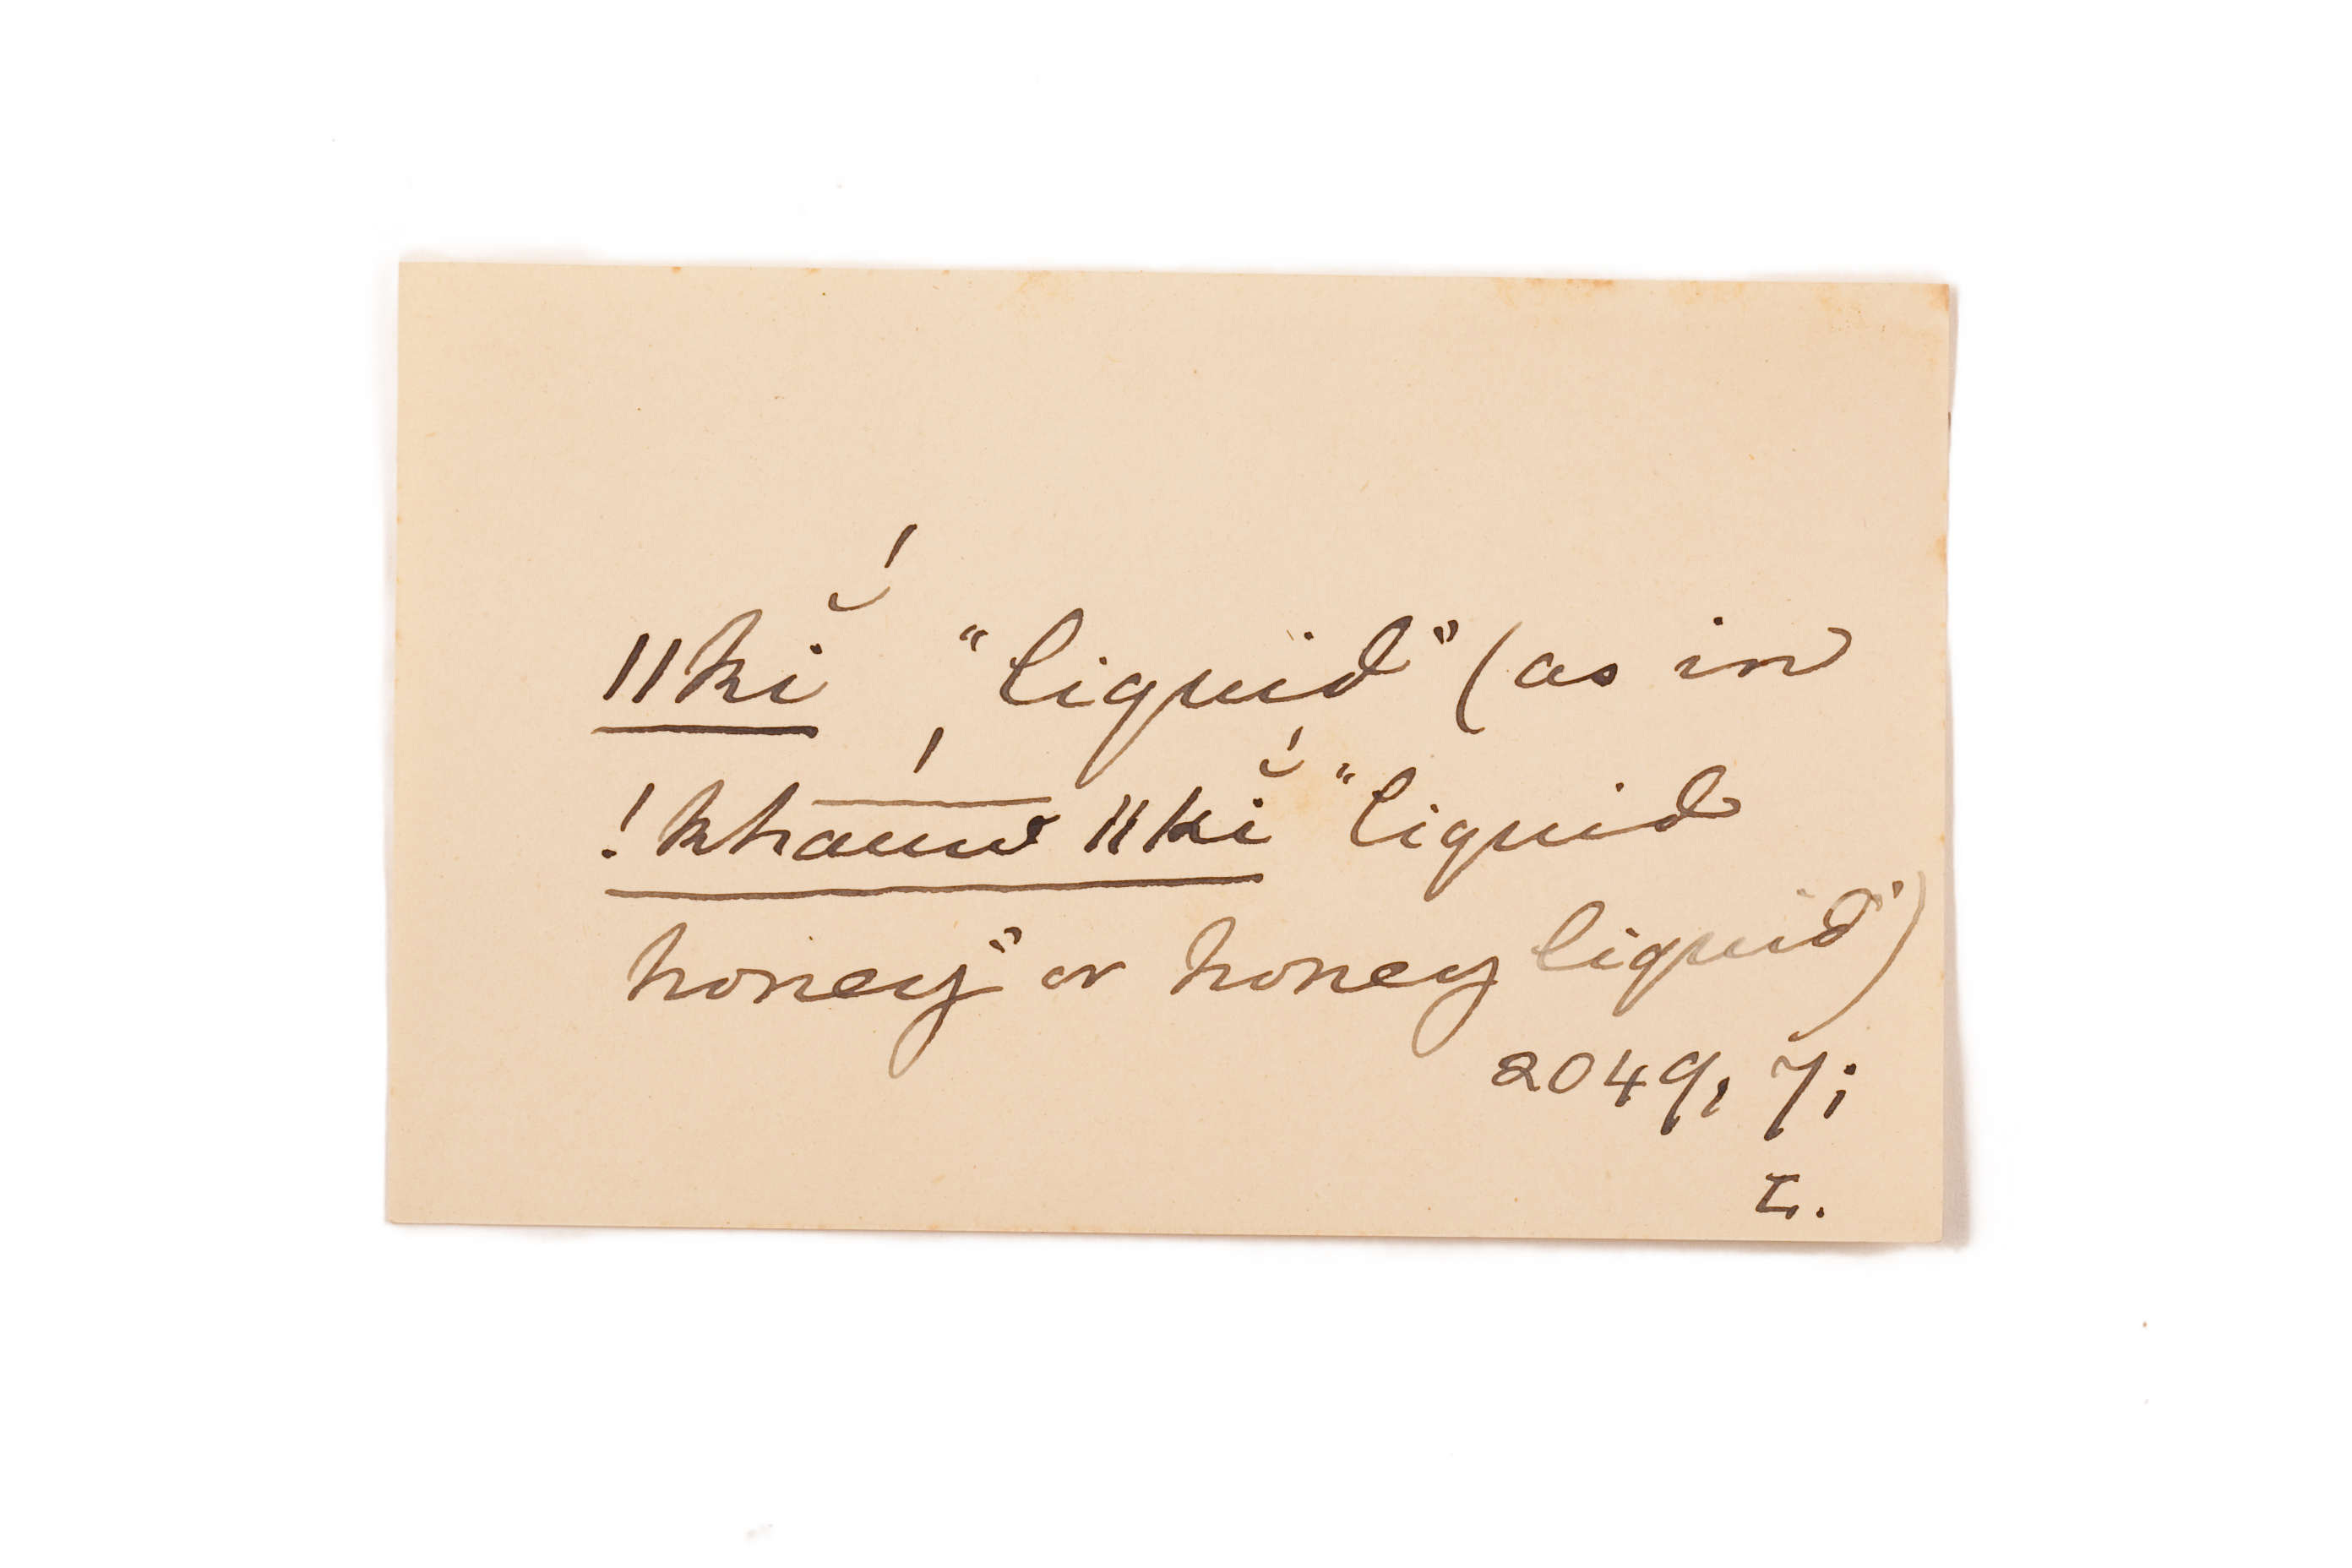 ǁkĭ́ "liquid" (as in
!khauw ǁkĭ́ "liquid
honey" or honey liquid")
2049, 7;
L.